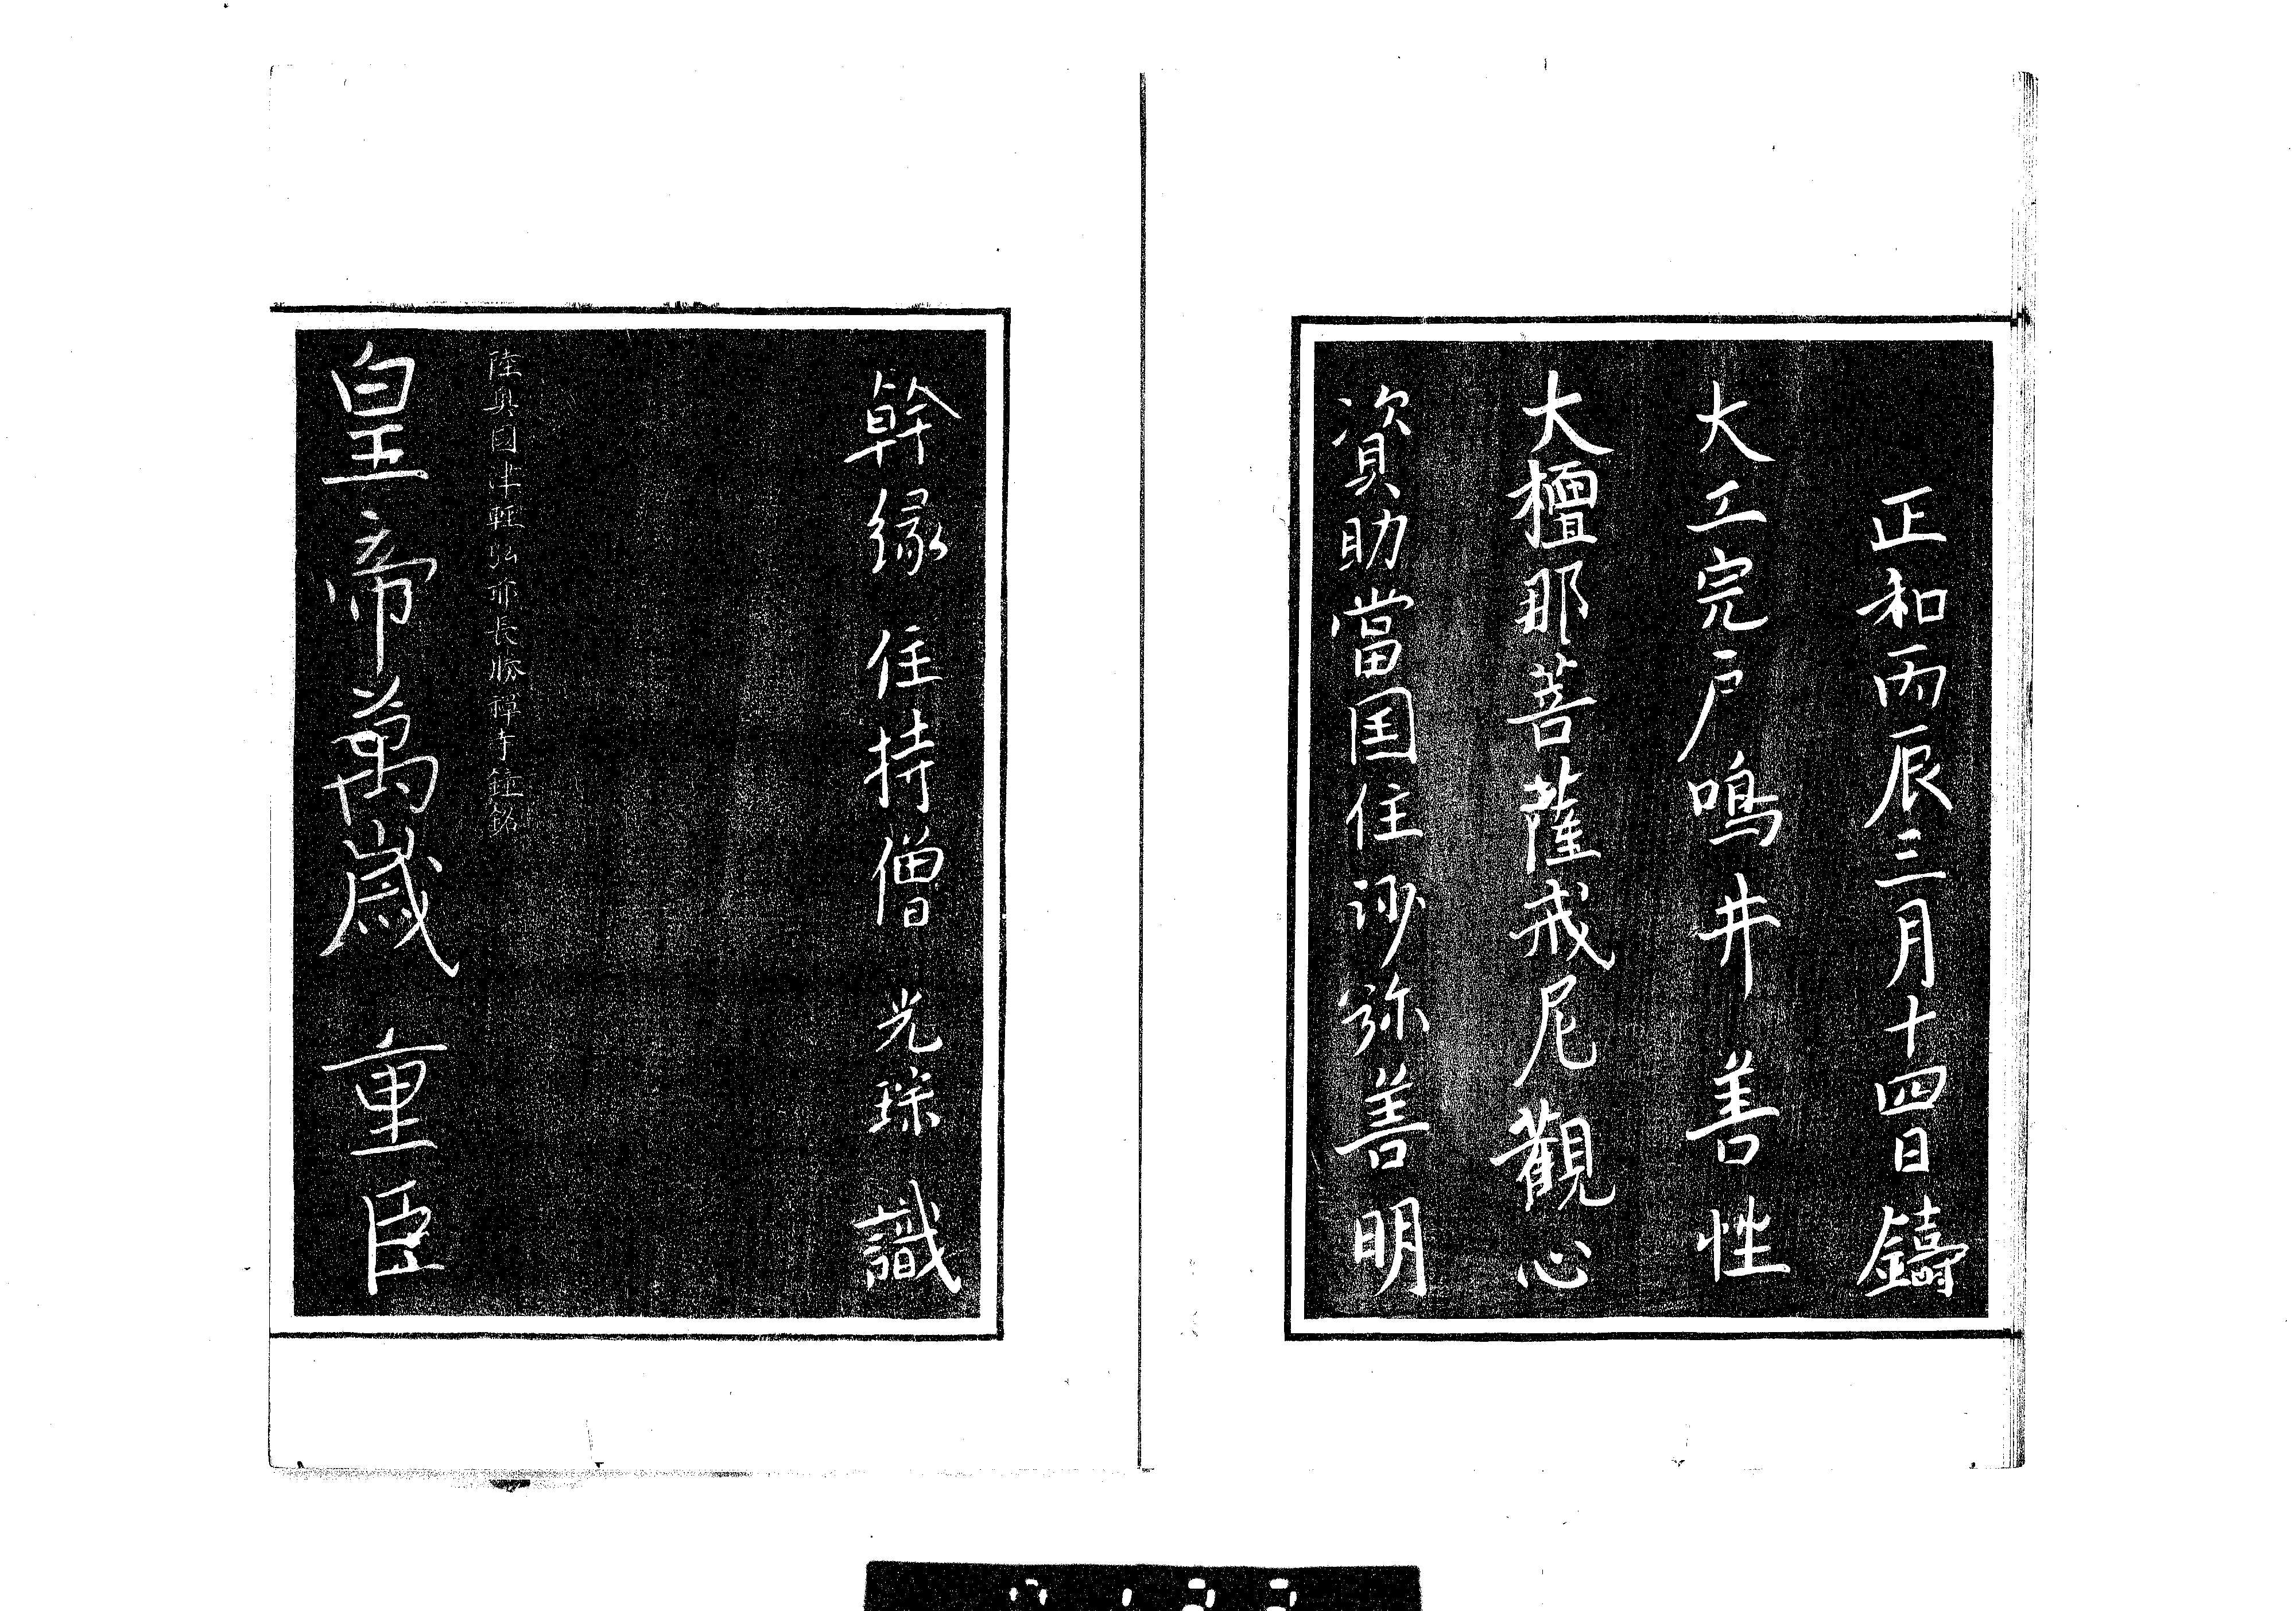 正和丙辰三月十四日鑄
大工完戸鳴井 善性
大檀那菩薩戒尼觀心
資助當国住沙弥善明
幹縁 住持僧 光琮 識
陸奥國津軽弘前長勝禅寺鐘銘
皇帝萬歳 重臣